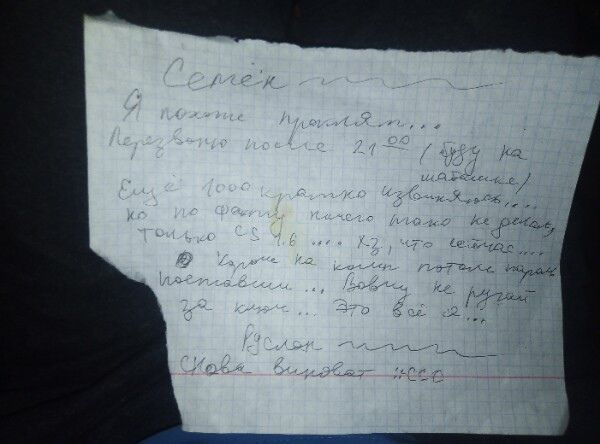 Семён
Я похоже проклят...
Перезвоню после 21 00 / буду на
шабашке/
Ещё 1000 кратно извиняюсь....
но по факту ничего тако не делал,
только CS 1.6 .... хз, что сейчас....
Короче на комп потом пароль
поставим... Вовку не ругай
за ключ... Это всё я...
Руслан
снова виноват